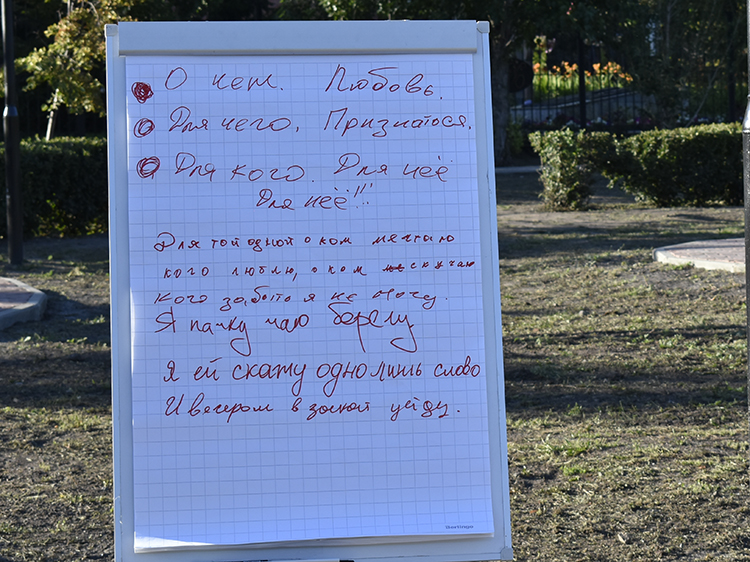 О чем. Любовь.
Для чего. Признаться.
Для кого. Для неё
Для неё!!!
Для той одной о ком мечтаю
кого люблю, о ком скучаю
Кого забыть я не могу.
Я пачку чаю берегу
Я ей скажу одно лишь слово
И вечером в закат уйду.